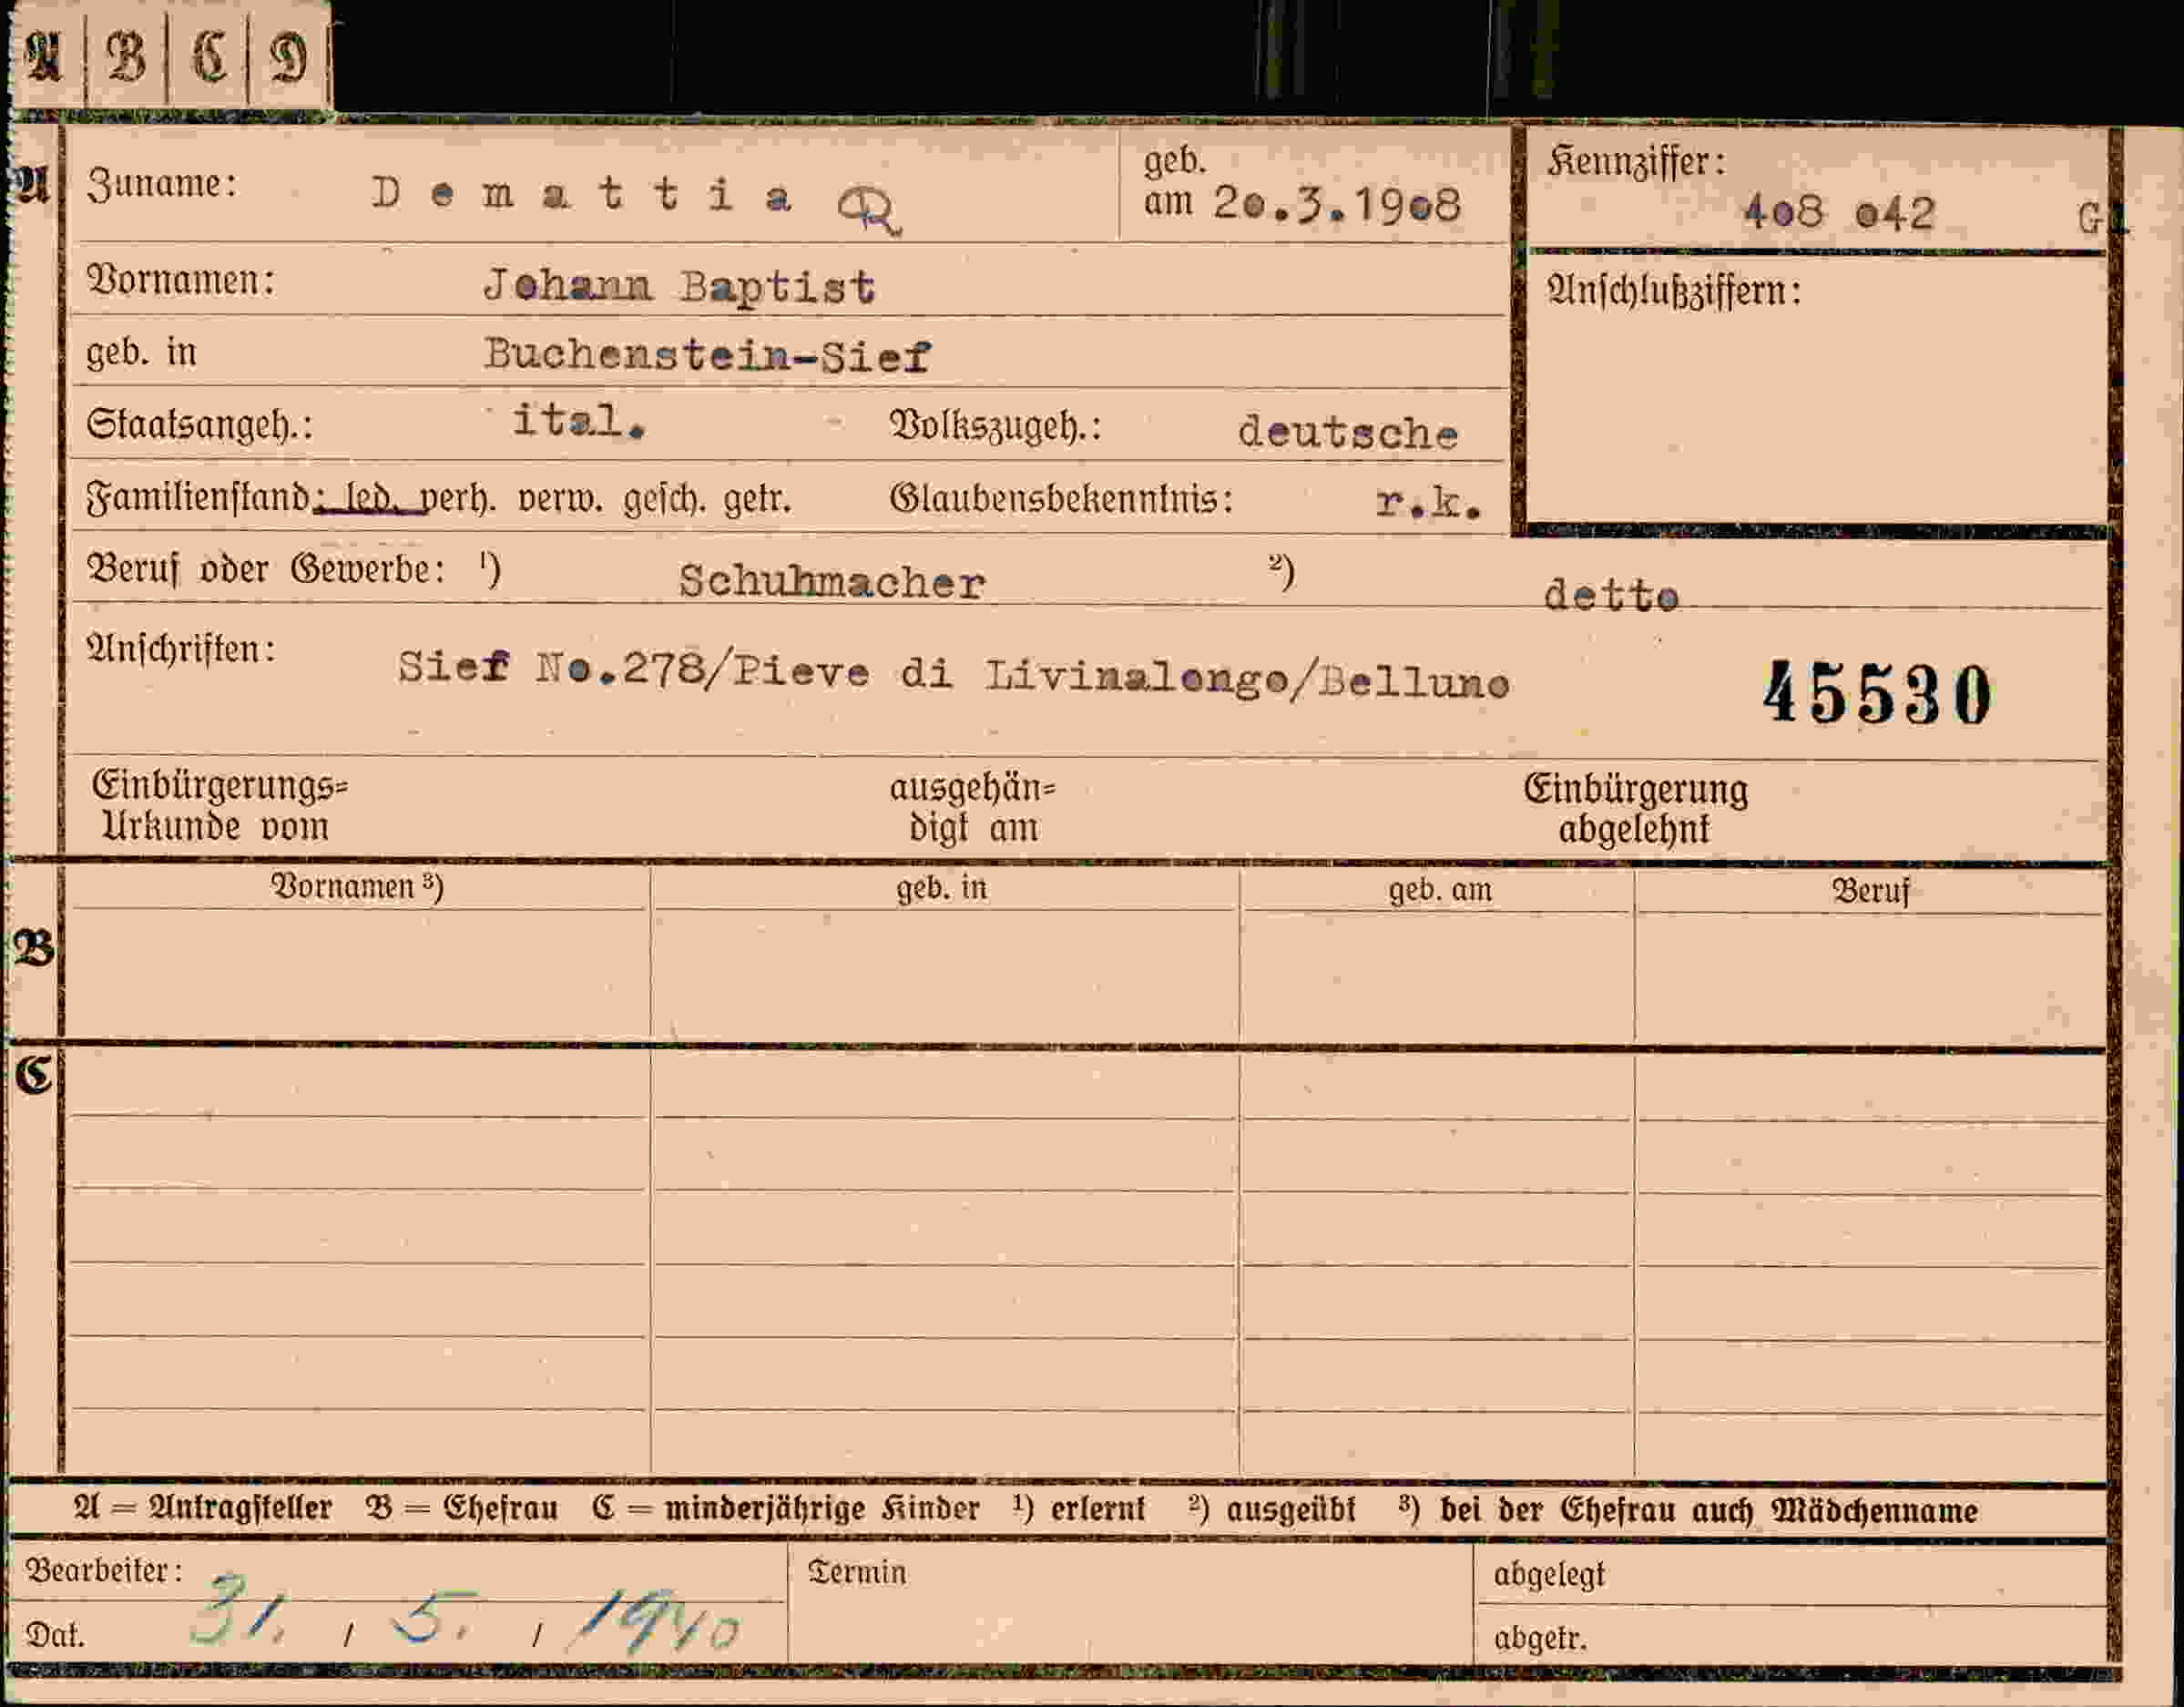 A B C D
A Zuname: Demattia geb. am 20.3.1908 Kennziffer: 408 042
Vornamen: Johann Baptist Anschlußziffern:
geb. in Buchenstein-Sief
Staatsangeh.: ital. Volkszugeh.: deutsche
Familienstand: led. verh. verw. gesch. getr. Glaubensbekenntnis: r.k.
Beruf oder Gewerbe: ¹) Schuhmacher ²) detto
Anschriften: Sief No.278/Pieve di Livinalongo/Belluno 45530
Einbürgerungs= ausgehän= Einbürgerung
Urkunde vom digt am abgelehnt
Vornamen ³) geb. in geb. am Beruf
B
C
A = Antragsteller B = Ehefrau C = minderjährige Kinder ¹) erlernt ²) ausgeübt ³) bei der Ehefrau auch Mädchenname
Bearbeiter: Termin abgelegt
Dat. 31. / 5. / 1940 abgetr.